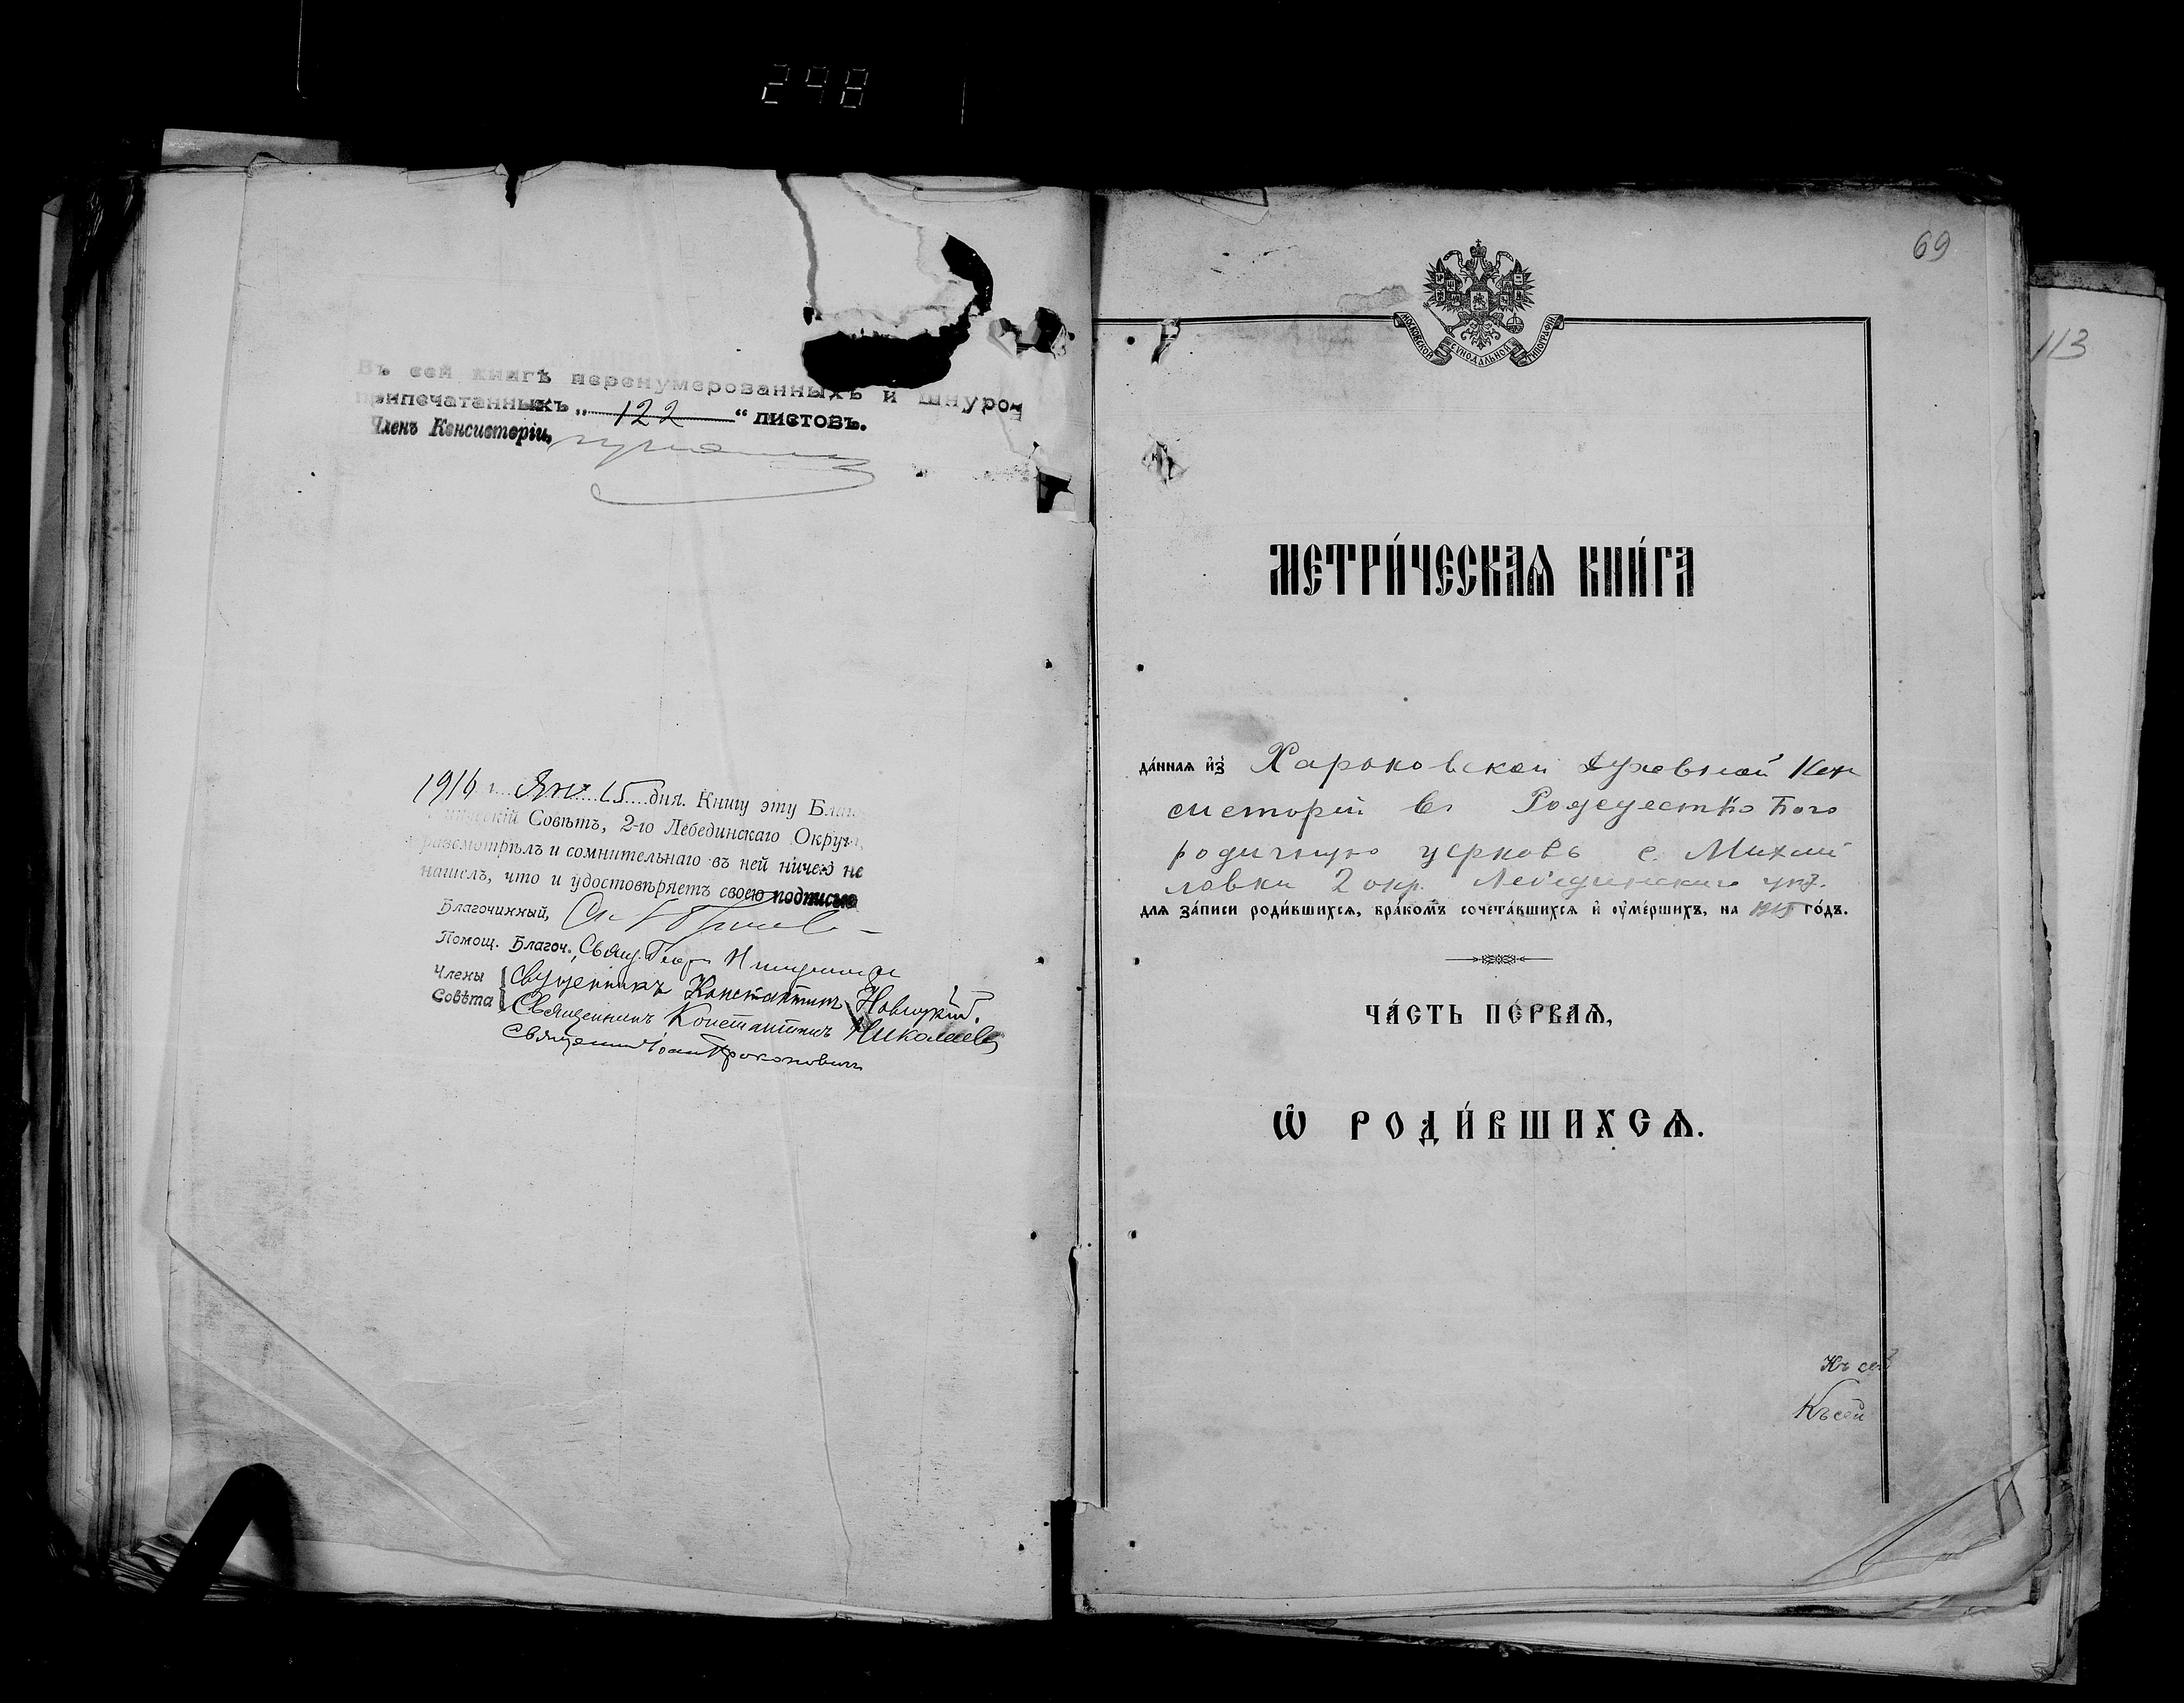 298
Въ сей книгѣ перенумерованныхъ и шнуро-
припечатанныхъ „ 122 “ листовъ.
Членъ Консисторіи,
1916 г. Янв 15 дня. Книгу эту Благо
Совѣтъ, 2-го Лебединскаго Округа,
разсмотрѣлъ и сомнительнаго въ ней ничего не
нашелъ, что и удостовѣряетъ своею подписью
Благочинный,
Помощ. Благоч., Свящ. Георг
Члены Священникъ Константинъ Новицкій.
Совѣта Священникъ Константинъ Николаев
Священник Іоан Прокопович
69
113
МОСКОВСКОЙ СѴНОДАЛЬНОЙ ТИПОГРАФІИ
МЕТРИ́ЧЕСКАѦ КНИ́ГА
да́ннаѧ и҆з꙾ Харьковской Духовной Кон
систоріи въ Рождество Бого
родичную церковь с. Михай
ловки 2 окр. Лебединскаго уѣз.
длѧ за́писи роди́вшихсѧ, бра́комъ сочета́вшихсѧ и҆ ᲂу҆ме́ршихъ, на 1915 го́дъ.
ЧА́СТЬ ПЕ́РВАѦ,
Ѽ РОДИ́ВШИХСѦ.
Къ сей
Къ сей